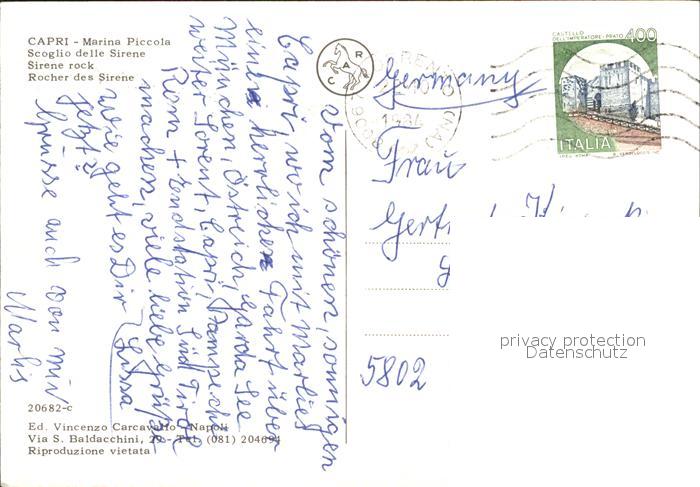 CAPRI - Marina Piccola
Scoglio delle Sirene
Sirene rock
Rocher des Sirene
Vom schönen, sonnigen
Capri, wo ich mit Marlies
eine herrliche Fahrt über
München, Östreich, Garda See
weiter Sorent, Capri, Pompech
Rom + Endstation Süd Tirol
machen, viele liebe Grüße
Wie geht es Dir
jetzt?
Grüsse auch von mir
Marlis
CAR
1984
80067
CASTELLO
DELL'IMPERATORE - PRATO
400
ITALIA
Germany
Frau
Gert
5802
privacy protection
Datenschutz
20682-c
Ed. Vincenzo Carcavallo - Napoli
Via S. Baldacchini, 29 - Tel. (081) 204694
Riproduzione vietata